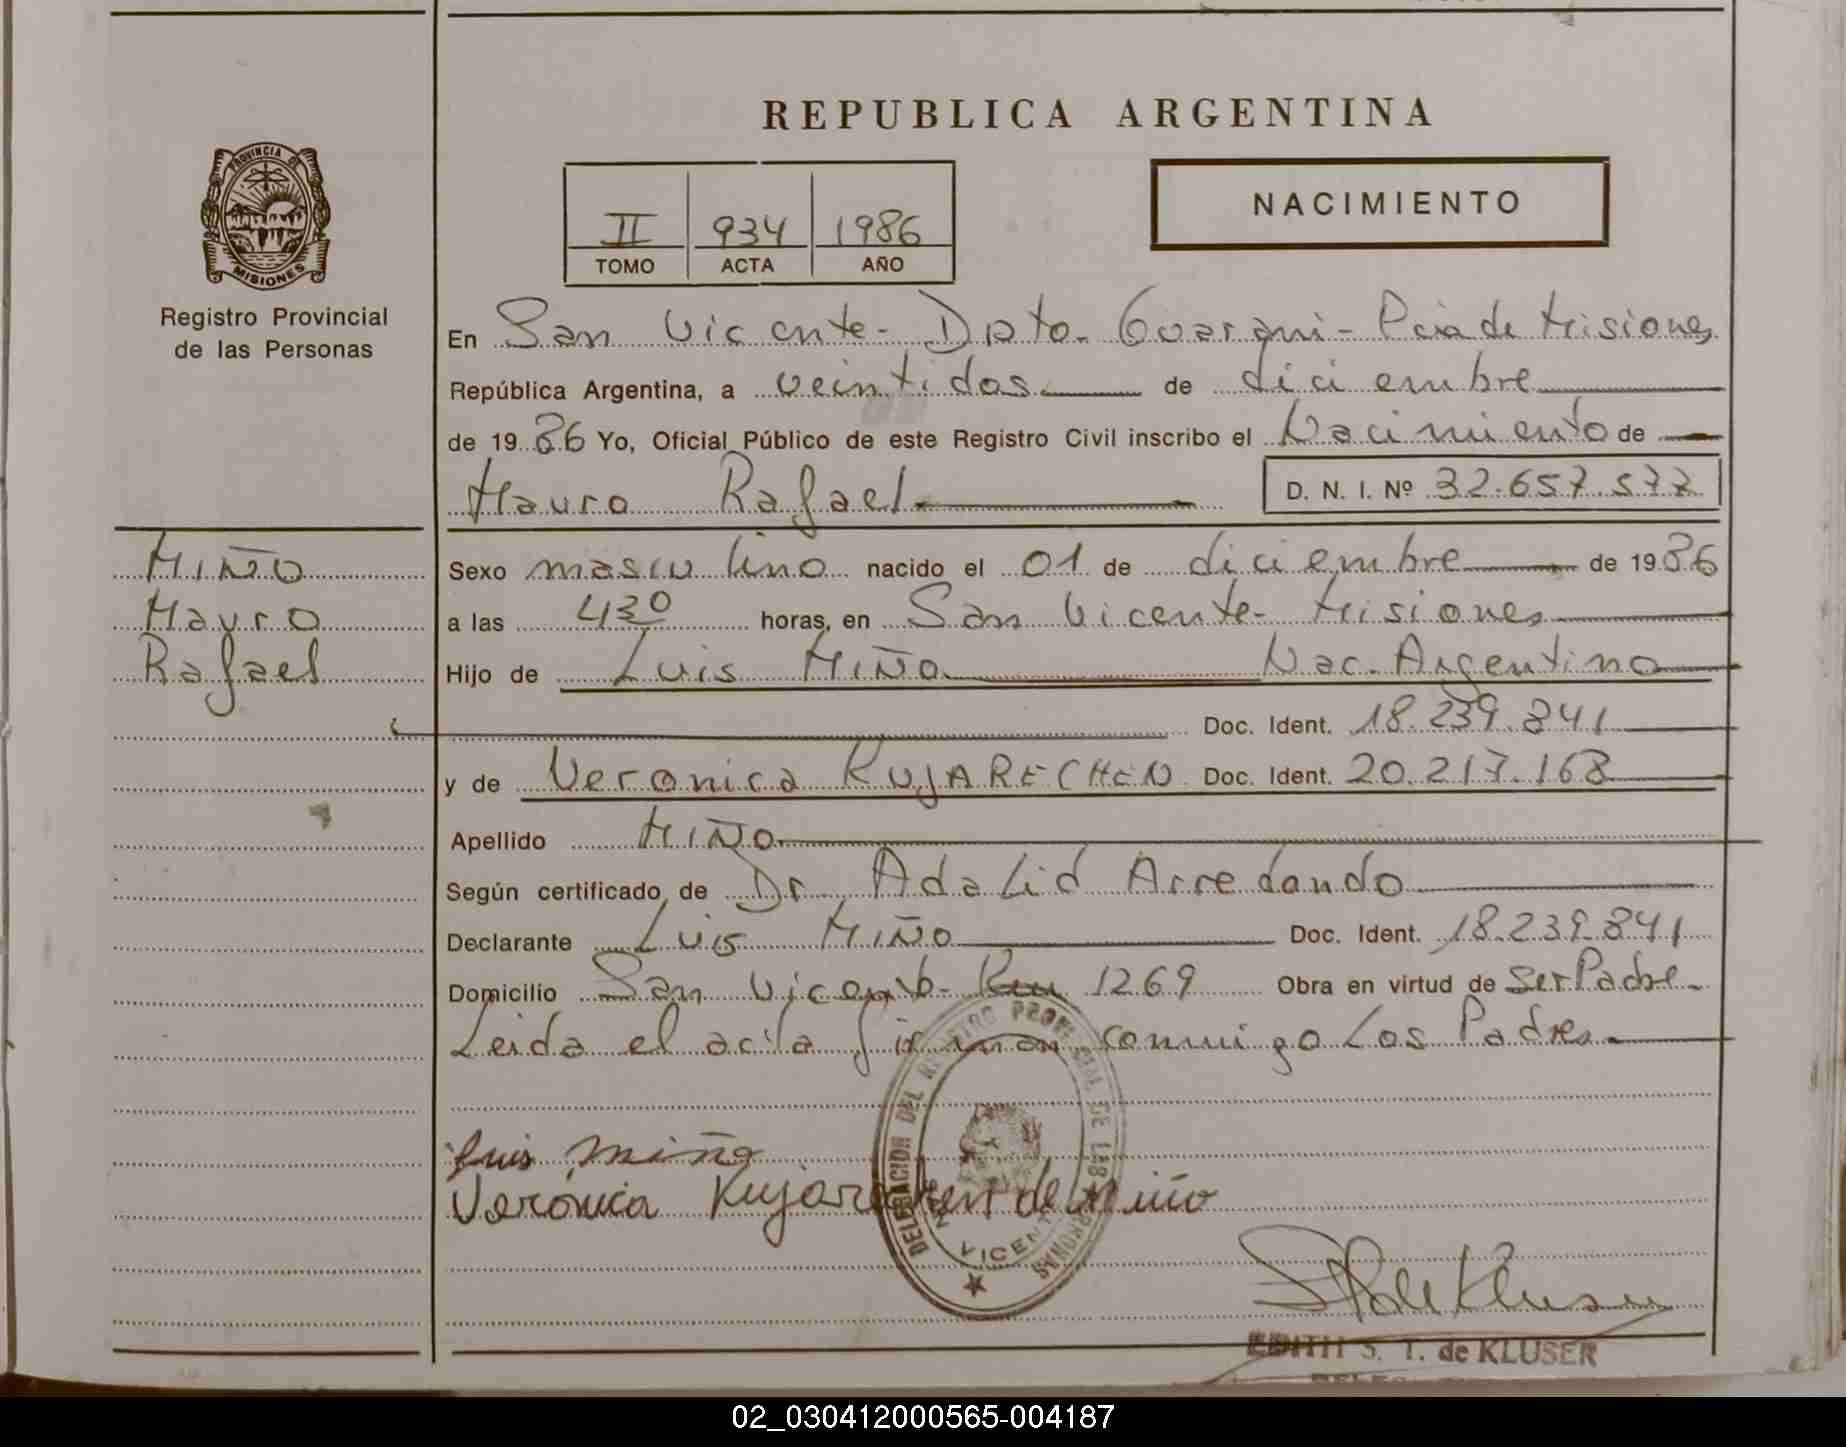 REPUBLICA ARGENTINA
PROVINCIA DE
MISIONES
Registro Provincial
de las Personas
II 934 1986
TOMO ACTA AÑO
NACIMIENTO
En San Vicente - Dpto. Guarani - Pcia de Misiones
República Argentina, a veintidos de diciembre
de 1986 Yo, Oficial Público de este Registro Civil inscribo el Nacimiento de
Mauro Rafael D. N. I. Nº 32.657.577
MIÑO
Mauro
Rafael
Sexo masculino nacido el 01 de diciembre de 1986
a las 430 horas, en San Vicente - Misiones
Hijo de Luis MIÑO Nac. Argentino
Doc. Ident. 18.239.841
y de Veronica KUJARECHEN Doc. Ident. 20.217.168
Apellido MIÑO
Según certificado de Dr Adalid Arredondo
Declarante Luis MIÑO Doc. Ident. 18.239.841
Domicilio San Vicente - Km 1269 Obra en virtud de Ser Padre -
Leida el acta firman conmigo Los Padres
Luis Miño
Verónica Kujarechen de Miño
DELEGACION DEL REGISTRO PROVINCIAL DE LAS PERSONAS
VICENTE
EDITH S. T. de KLUSER
02_030412000565-004187